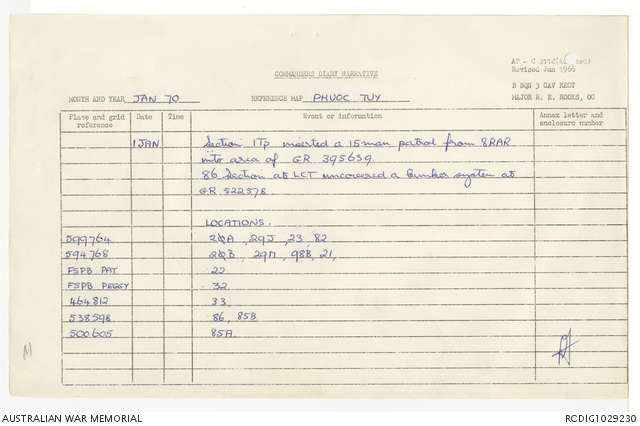 AT - C
Revised Jun 1966
COMMANDERS DIARY NARRATIVE
B SQN 3 CAV REGT
MAJOR R. E. ROOKS, OC
MONTH AND YEAR JAN 70 REFERENCE MAP PHUOC TUY
Place and grid reference Date Time Event or information Annex letter and enclosure number
1 JAN Section 1Tp inserted a 15 man patrol from 8RAR
into area of GR. 395659
86 Section at LCT uncovered a bunker system at
GR. 522578.
LOCATIONS.
599764 20A, 29J, 23, 82
594768 20B, 29M, 98B, 21,
FSPB PAT 22
FSPB PEGGY 32
464812 33
538598 86, 85B
500605 85A
M
AUSTRALIAN WAR MEMORIAL RCDIG1029230